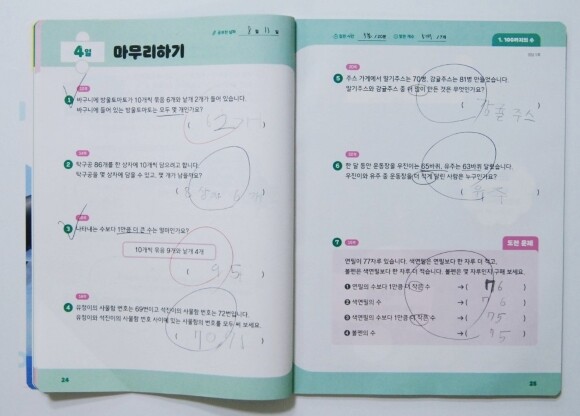 8월 11일
4일 마무리하기
1 바구니에 방울토마토가 10개씩 묶음 6개와 낱개 2개가 들어 있습니다.
바구니에 들어 있는 방울토마토는 모두 몇 개인가요?
( )
2 탁구공 86개를 한 상자에 10개씩 담으려고 합니다.
탁구공을 몇 상자에 담을 수 있고, 몇 개가 남을까요?
( 8 상자 6 개 )
3 나타내는 수보다 1만큼 더 큰 수는 얼마인가요?
10개씩 묶음 9개와 낱개 4개
( 95 )
4 유정이의 사물함 번호는 69번이고 석진이의 사물함 번호는 72번입니다.
유정이와 석진이의 사물함 번호 사이에 있는 사물함의 번호를 모두 써 보세요.
( 70, 71 )
24
1. 100까지의 수
5 주스 가게에서 딸기주스는 70병, 감귤주스는 81병 만들었습니다.
딸기주스와 감귤주스 중 더 많이 만든 것은 무엇인가요?
( 감귤 주스 )
6 한 달 동안 운동장을 우진이는 65바퀴, 유주는 63바퀴 달렸습니다.
우진이와 유주 중 운동장을 더 적게 달린 사람은 누구인가요?
( 유주 )
7 도전 문제
연필이 77자루 있습니다. 색연필은 연필보다 한 자루 더 적고,
볼펜은 색연필보다 한 자루 더 적습니다. 볼펜은 몇 자루인지 구해 보세요.
1 연필의 수보다 1만큼 더 작은 수 → ( 76 )
2 색연필의 수 → ( 76 )
3 색연필의 수보다 1만큼 더 작은 수 → ( 75 )
4 볼펜의 수 → ( 75 )
25